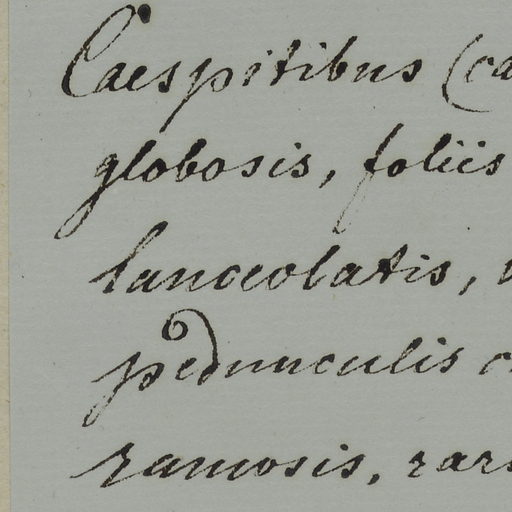 Caespitibus (ca
globosis, foliis
lanceolatis,
pedunculis
ramosis, rar